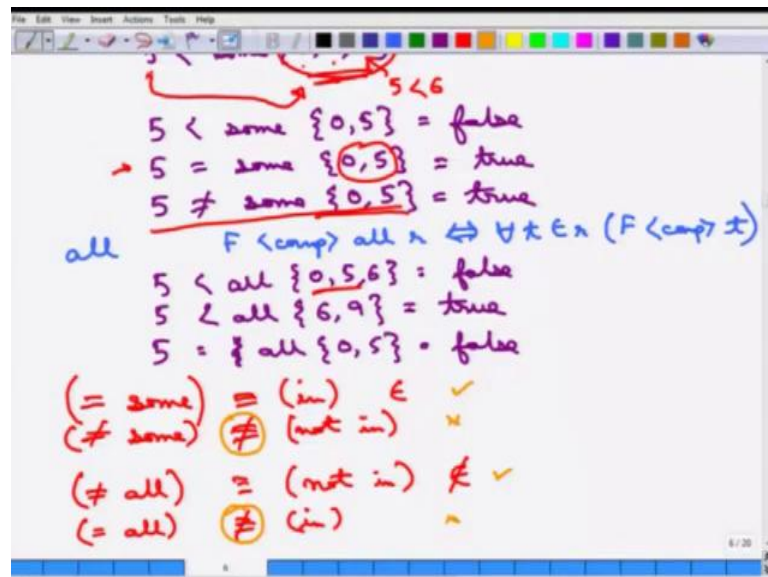 File Edit View Insert Actions Tools Help
5 < some
5<6
5 < some {0,5} = false
→ 5 = some {0,5} = true
5 ≠ some {0,5} = true
all F <comp> all r ⇔ ∀ t ∈ r (F <comp> t)
5 < all {0,5,6} = false
5 < all {6,9} = true
5 = { all {0,5} = false
(= some) ≡ (in) ∈ ✓
(≠ some) ≢ (not in) ×
(≠ all) ≡ (not in) ∉ ✓
(= all) ≢ (in) ×
6 / 20
6